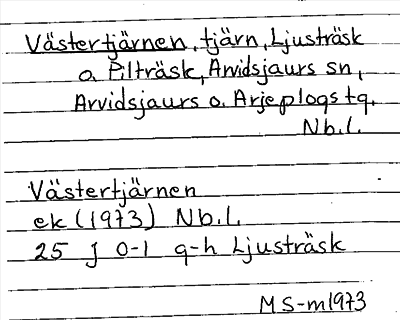 Västertjärnen, tjärn, Ljusträsk
o. Pilträsk, Arvidsjaurs sn,
Arvidsjaurs o. Arjeplogs tg.
Nb.l.
Västertjärnen
ek (1973) Nb.l.
25 J 0-1 g-h Ljusträsk
MS-m1973